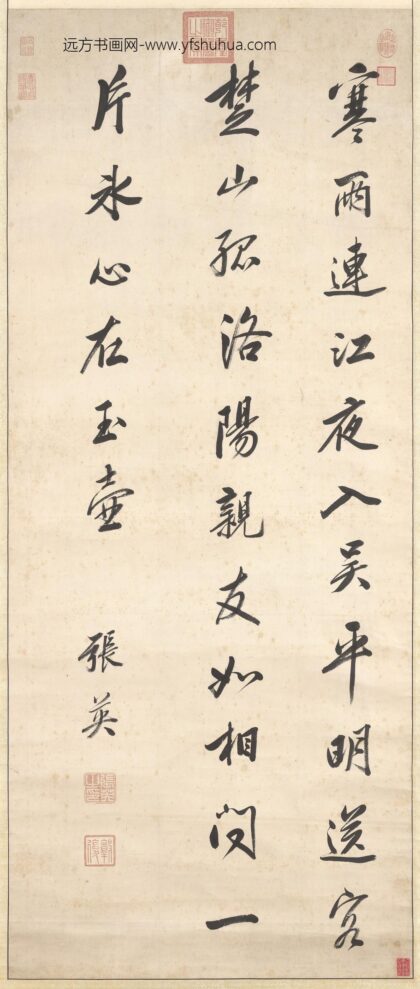 远方书画网-www.yfshuhua.com
寒雨連江夜入吴平明送客
楚山孤洛陽親友如相問一
片氷心在玉壺
張英